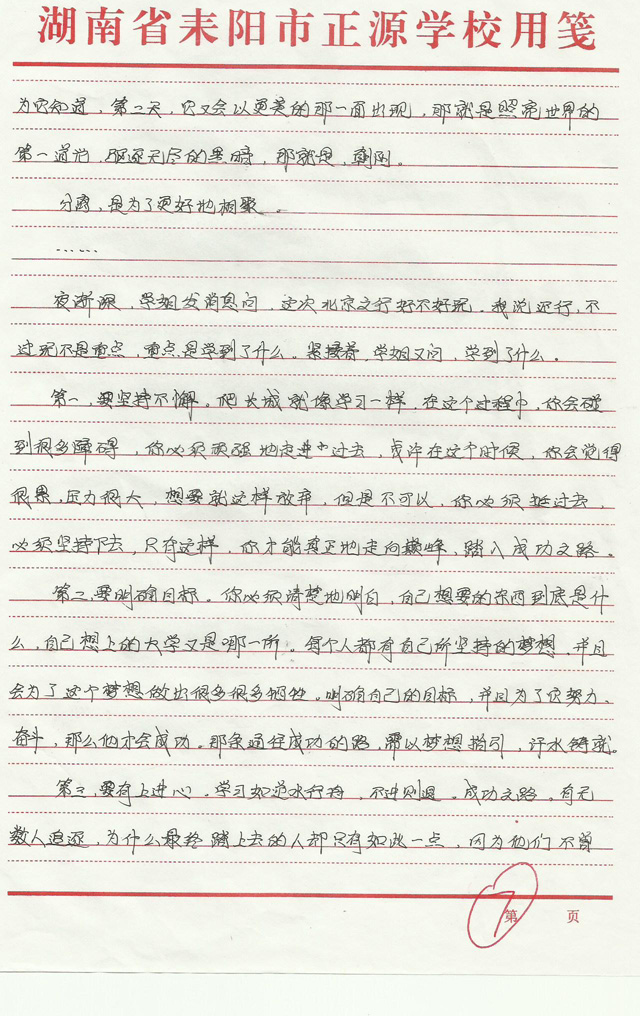 湖南省耒阳市正源学校用笺
为它知道，第二天，它又会以更美的那一面出现，那就是照亮世界的
第一道光，驱逐无尽的黑暗，那就是，朝阳。
分离，是为了更好地相聚。
……
夜渐深，学姐发消息问，这次北京之行好不好玩。我说还行，不
过玩不是重点，重点是学到了什么。紧接着，学姐又问，学到了什么。
第一，要坚持不懈。爬长城就像学习一样，在这个过程中，你会碰
到很多障碍，你必须顽强地走过去，或许在这个时候，你会觉得
很累，压力很大，想要就这样放弃，但是不可以，你必须挺过去，
必须坚持下去，只有这样，你才能真正地走向巅峰，踏入成功之路。
第二，要明确目标。你必须清楚地明白，自己想要的东西到底是什
么，自己想上的大学又是哪一所。每个人都有自己所坚持的梦想，并且
会为了这个梦想做出很多很多牺牲。明确自己的目标，并且为了它努力、
奋斗，那么他才会成功。那条通往成功的路，需以梦想指引，汗水铸就。
第三，要有上进心。学习如逆水行舟，不进则退。成功之路。有无
数人追逐，为什么最终踏上去的人都只有如此一点，因为他们不曾
7
第 页